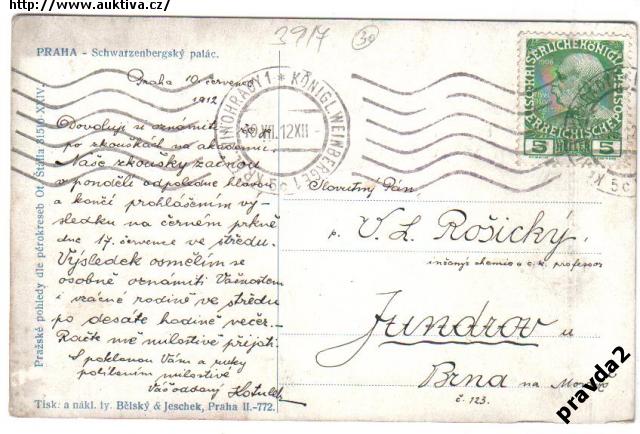 http://www.auktiva.cz/
3917
30
PRAHA - Schwarzenbergský palác.
Praha 10. července
1912
Dovoluji si oznámiti
po zkouškách na akademii.
Naše zkoušky začnou
v pondělí odpoledne
a končí prohlášením vý-
sledku na černém prkně
dne 17. července ve středu.
Výsledek osmělím se
osobně oznámiti Vašnostem
i vzácné rodině ve středu
po desáté hodině večer.
Račte mne milostivě přijati.
S poklonou Vám a ruky
políbením milostivé
Váš oddaný
Tisk. a nákl. fy. Bělský & Jeschek, Praha II.-772.
Pražské pohledy dle pérokreseb Ot. Štáfla 31510-XXIV.
VINOHRADY 1 * KÖNIGL. WEINBERGE 1
12 XII
KAISERLICHE KÖNIGLICHE
ÖSTERREICHISCHE POST
5 HELLER 5
Slovutný Pán
p. V. L. Rošický,
inženýr chemie a c. k. professor
Jundrov u
Brna na Moravě
č. 123.
pravda2